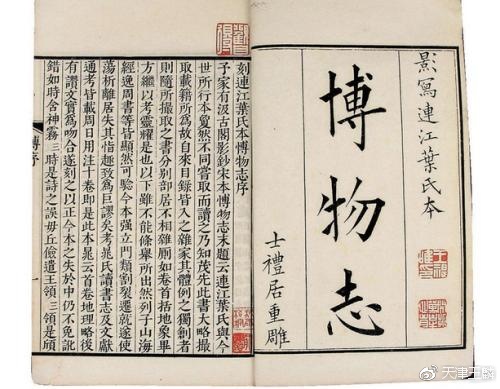 影寫連江葉氏本
博物志
士禮居重雕
刻連江葉氏本博物志序
予家有汲古閣影鈔宋本博物志末題云連江葉氏與今
世所行本夐然不同嘗取而讀之乃知茂先此書大略撮
取載籍所爲故自來目錄皆入之雜家其體例之獨創者
則隨所撮取之書分別部居不相雜厠如卷首括地象畢
方繼以考靈耀是也以下雖不能條舉所出然列于山海
經逸周書等皆顯然可驗今本强立門類割裂遷就遂使
蕩析離居失其恉趣致爲巨謬矣考晁氏讀書志及文獻
通考皆載周日用注十卷即是此本晁云首卷地理略後
有讚文實爲吻合遂刻之以正今本之失於中仍不免訛
錯如時含神霧三時是詩之誤毋丘儉遣王領三領是頎
博序
@天津王麟